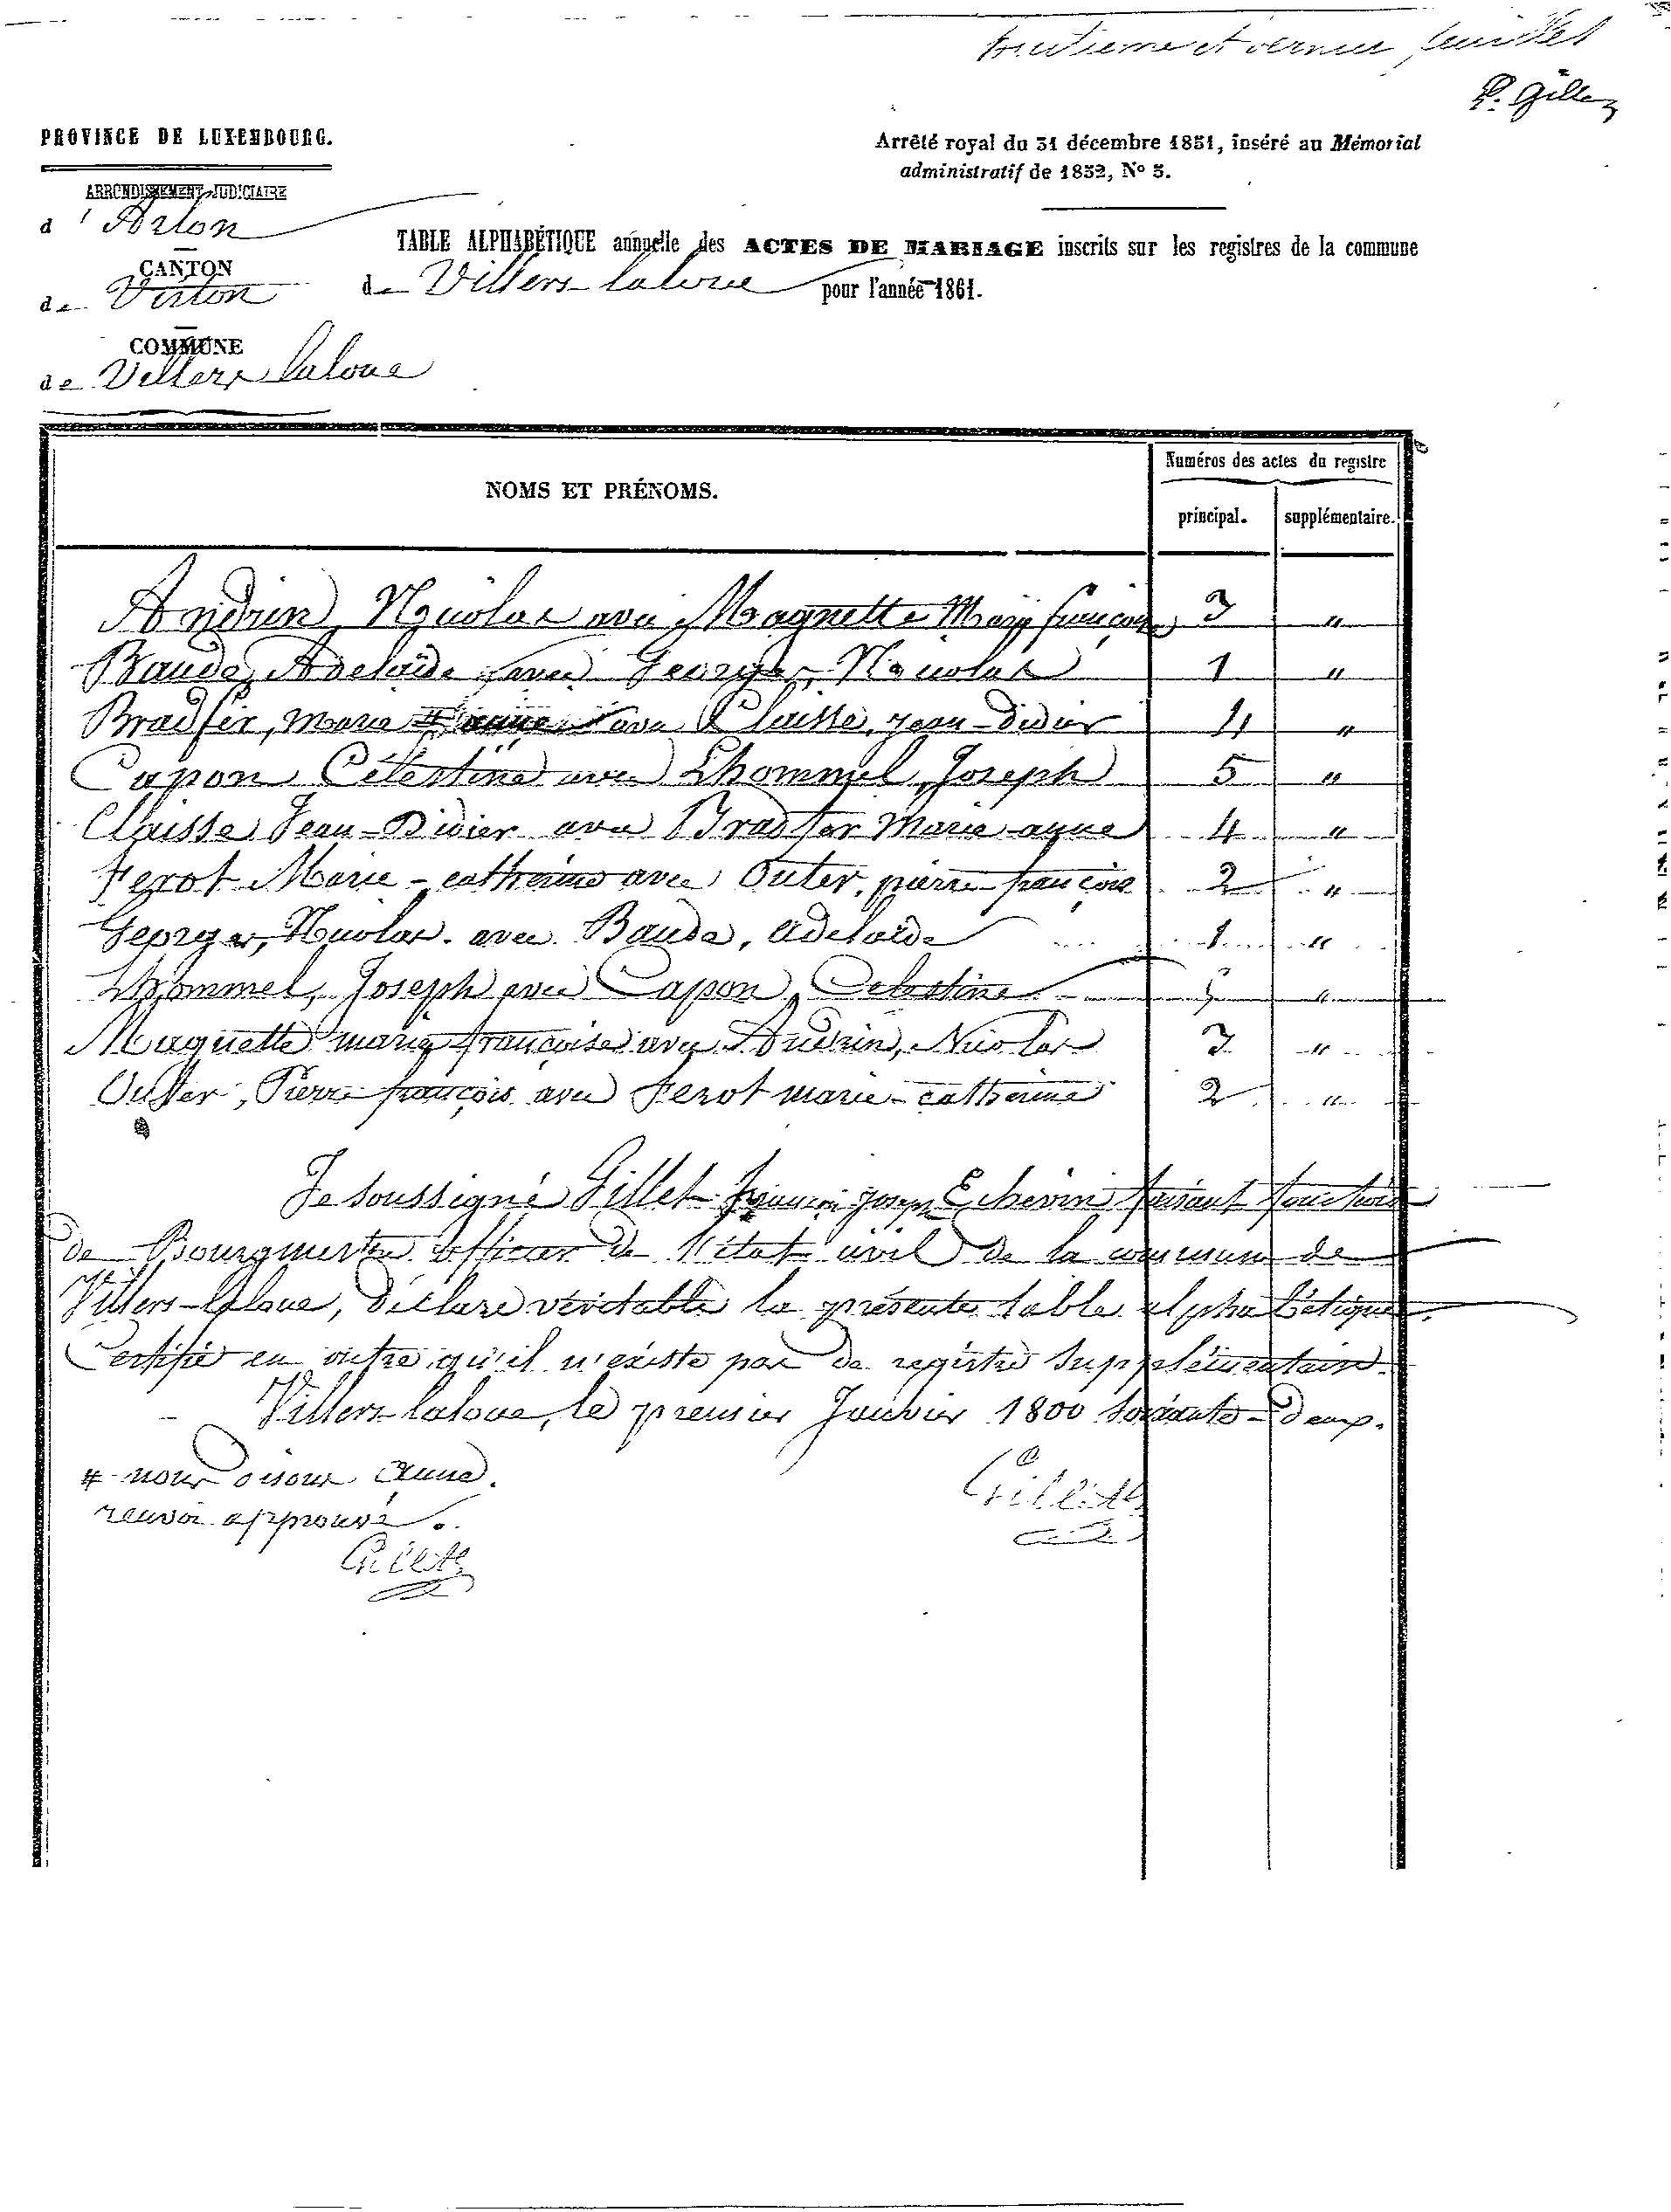 et dernier feuillet
P. Gillez
PROVINCE DE LUXEMBOURG.
ARRONDISSEMENT JUDICIAIRE
d'Arlon
CANTON
de Virton
COMMUNE
de Villers laloue
Arrêté royal du 31 décembre 1851, inséré au Mémorial
administratif de 1852, No 5.
TABLE ALPHABÉTIQUE annuelle des ACTES DE MARIAGE inscrits sur les registres de la commune
de Villers laloue pour l'année 1861.
Numéros des actes du registre
NOMS ET PRÉNOMS.
principal. supplémentaire.
Andrin, Nicolas avec Magnette Marie françoise 3 "
Bauda, Adelaïde avec Georges, Nicolas 1 "
Bradfer, Marie # avec Claisse, jean-Didier 4 "
Capon Célestine avec Lhommel, Joseph 5 "
Claisse Jean-Didier avec Bradfer Marie anne 4 "
Ferot Marie-catherine avec Outer, pierre françois 2 "
Georges, Nicolas avec Bauda, Adelaïde 1 "
Lhommel, Joseph avec Capon, Celestine 5 "
Magnette marie françoise avec Andrin, Nicolas 3 "
Outer, Pierre françois avec Ferot marie-catherine 2 "
Je soussigné Gillet françois joseph Echevin faisant fonctions
de Bourgmestre officier de l'état civil de la commune de
Villers-laloue, déclare véritable la présente table alphabétique
Certifie en outre qu'il n'existe pas de registre supplémentaire.
Villers laloue, le premier Janvier 1800 soixante-deux.
# nous disons Anne.
renvoi approuvé.
Gillet
Gillet